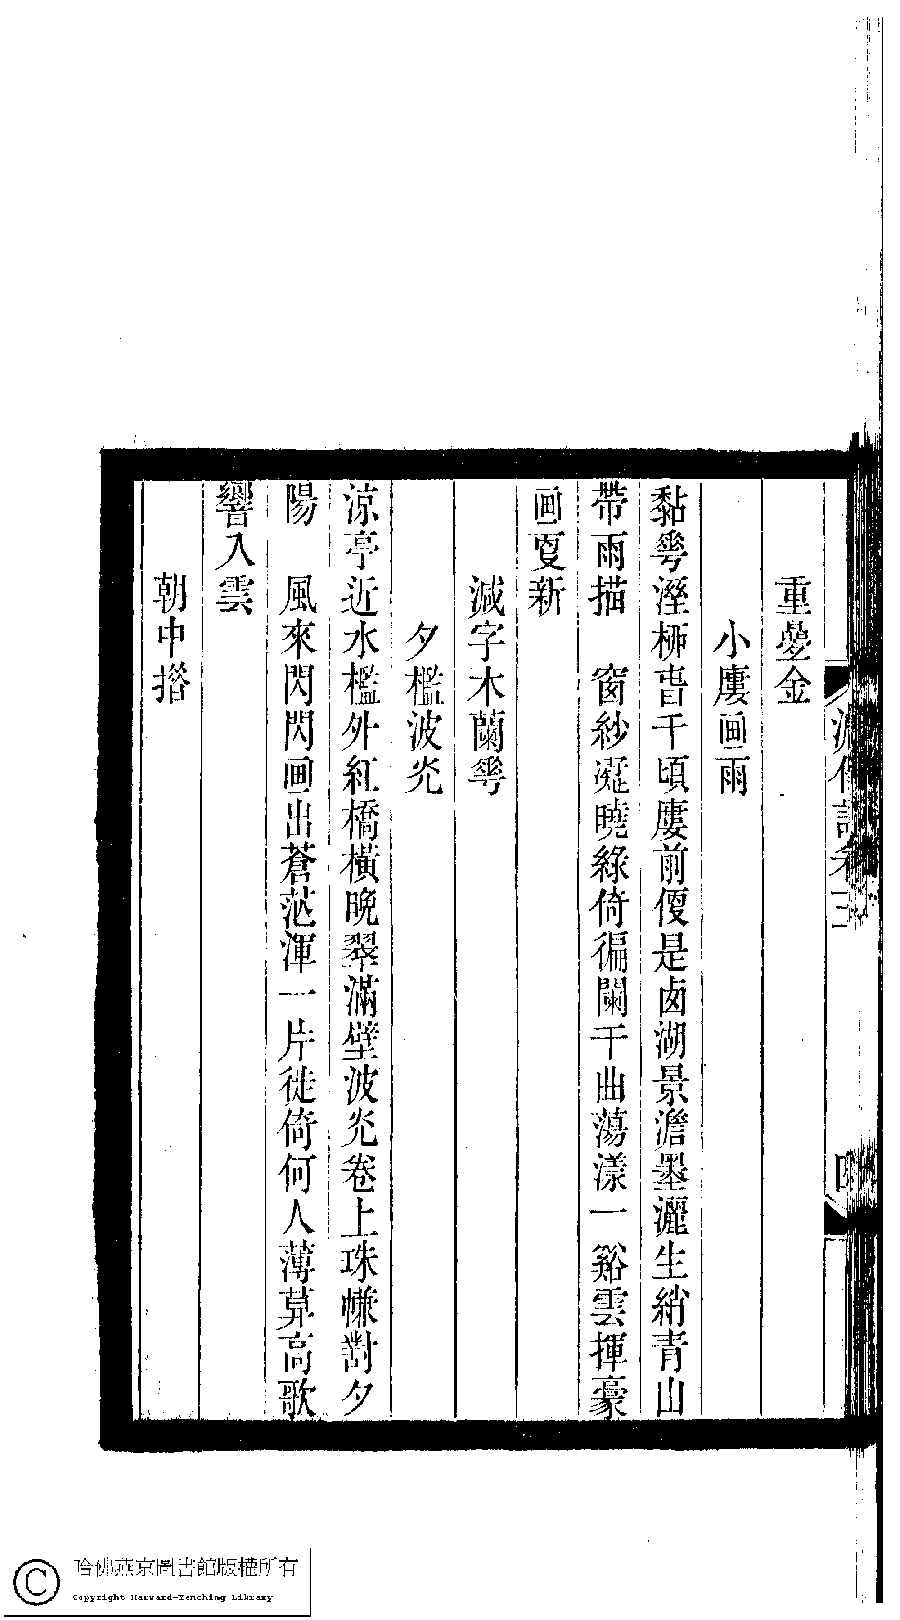 重疊金
小廔画雨
黏䔢溼桺㫺千頃廔前𠊳是卥湖景澹墨灑生綃青山
帶雨描　窗紗凝曉綠倚徧闌干曲蕩漾一谿雲揮豪
画㪅新
減字木蘭䔢
夕檻波灮
涼亭近水檻外紅橋橫晚翠滿壁波灮卷上珠㡘對夕
陽　風來閃閃画出蒼茫渾一片徙倚何人薄莫高歌
響入雲
朝中揩
卷
四
哈佛燕京圖書館版權所有
Copyright Harvard-Yenching Library